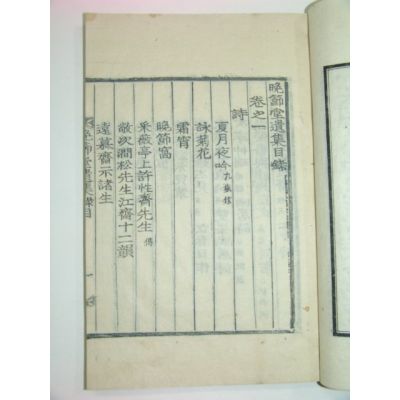 晩節堂遺集目錄
卷之一
詩
夏月夜吟
詠菊花
霜宵
晩節窩
采薇亭上許性齋先生 傳
敬次澗松先生江齋十二韻
遠慕齋示諸生
晩節堂遺集 目
一